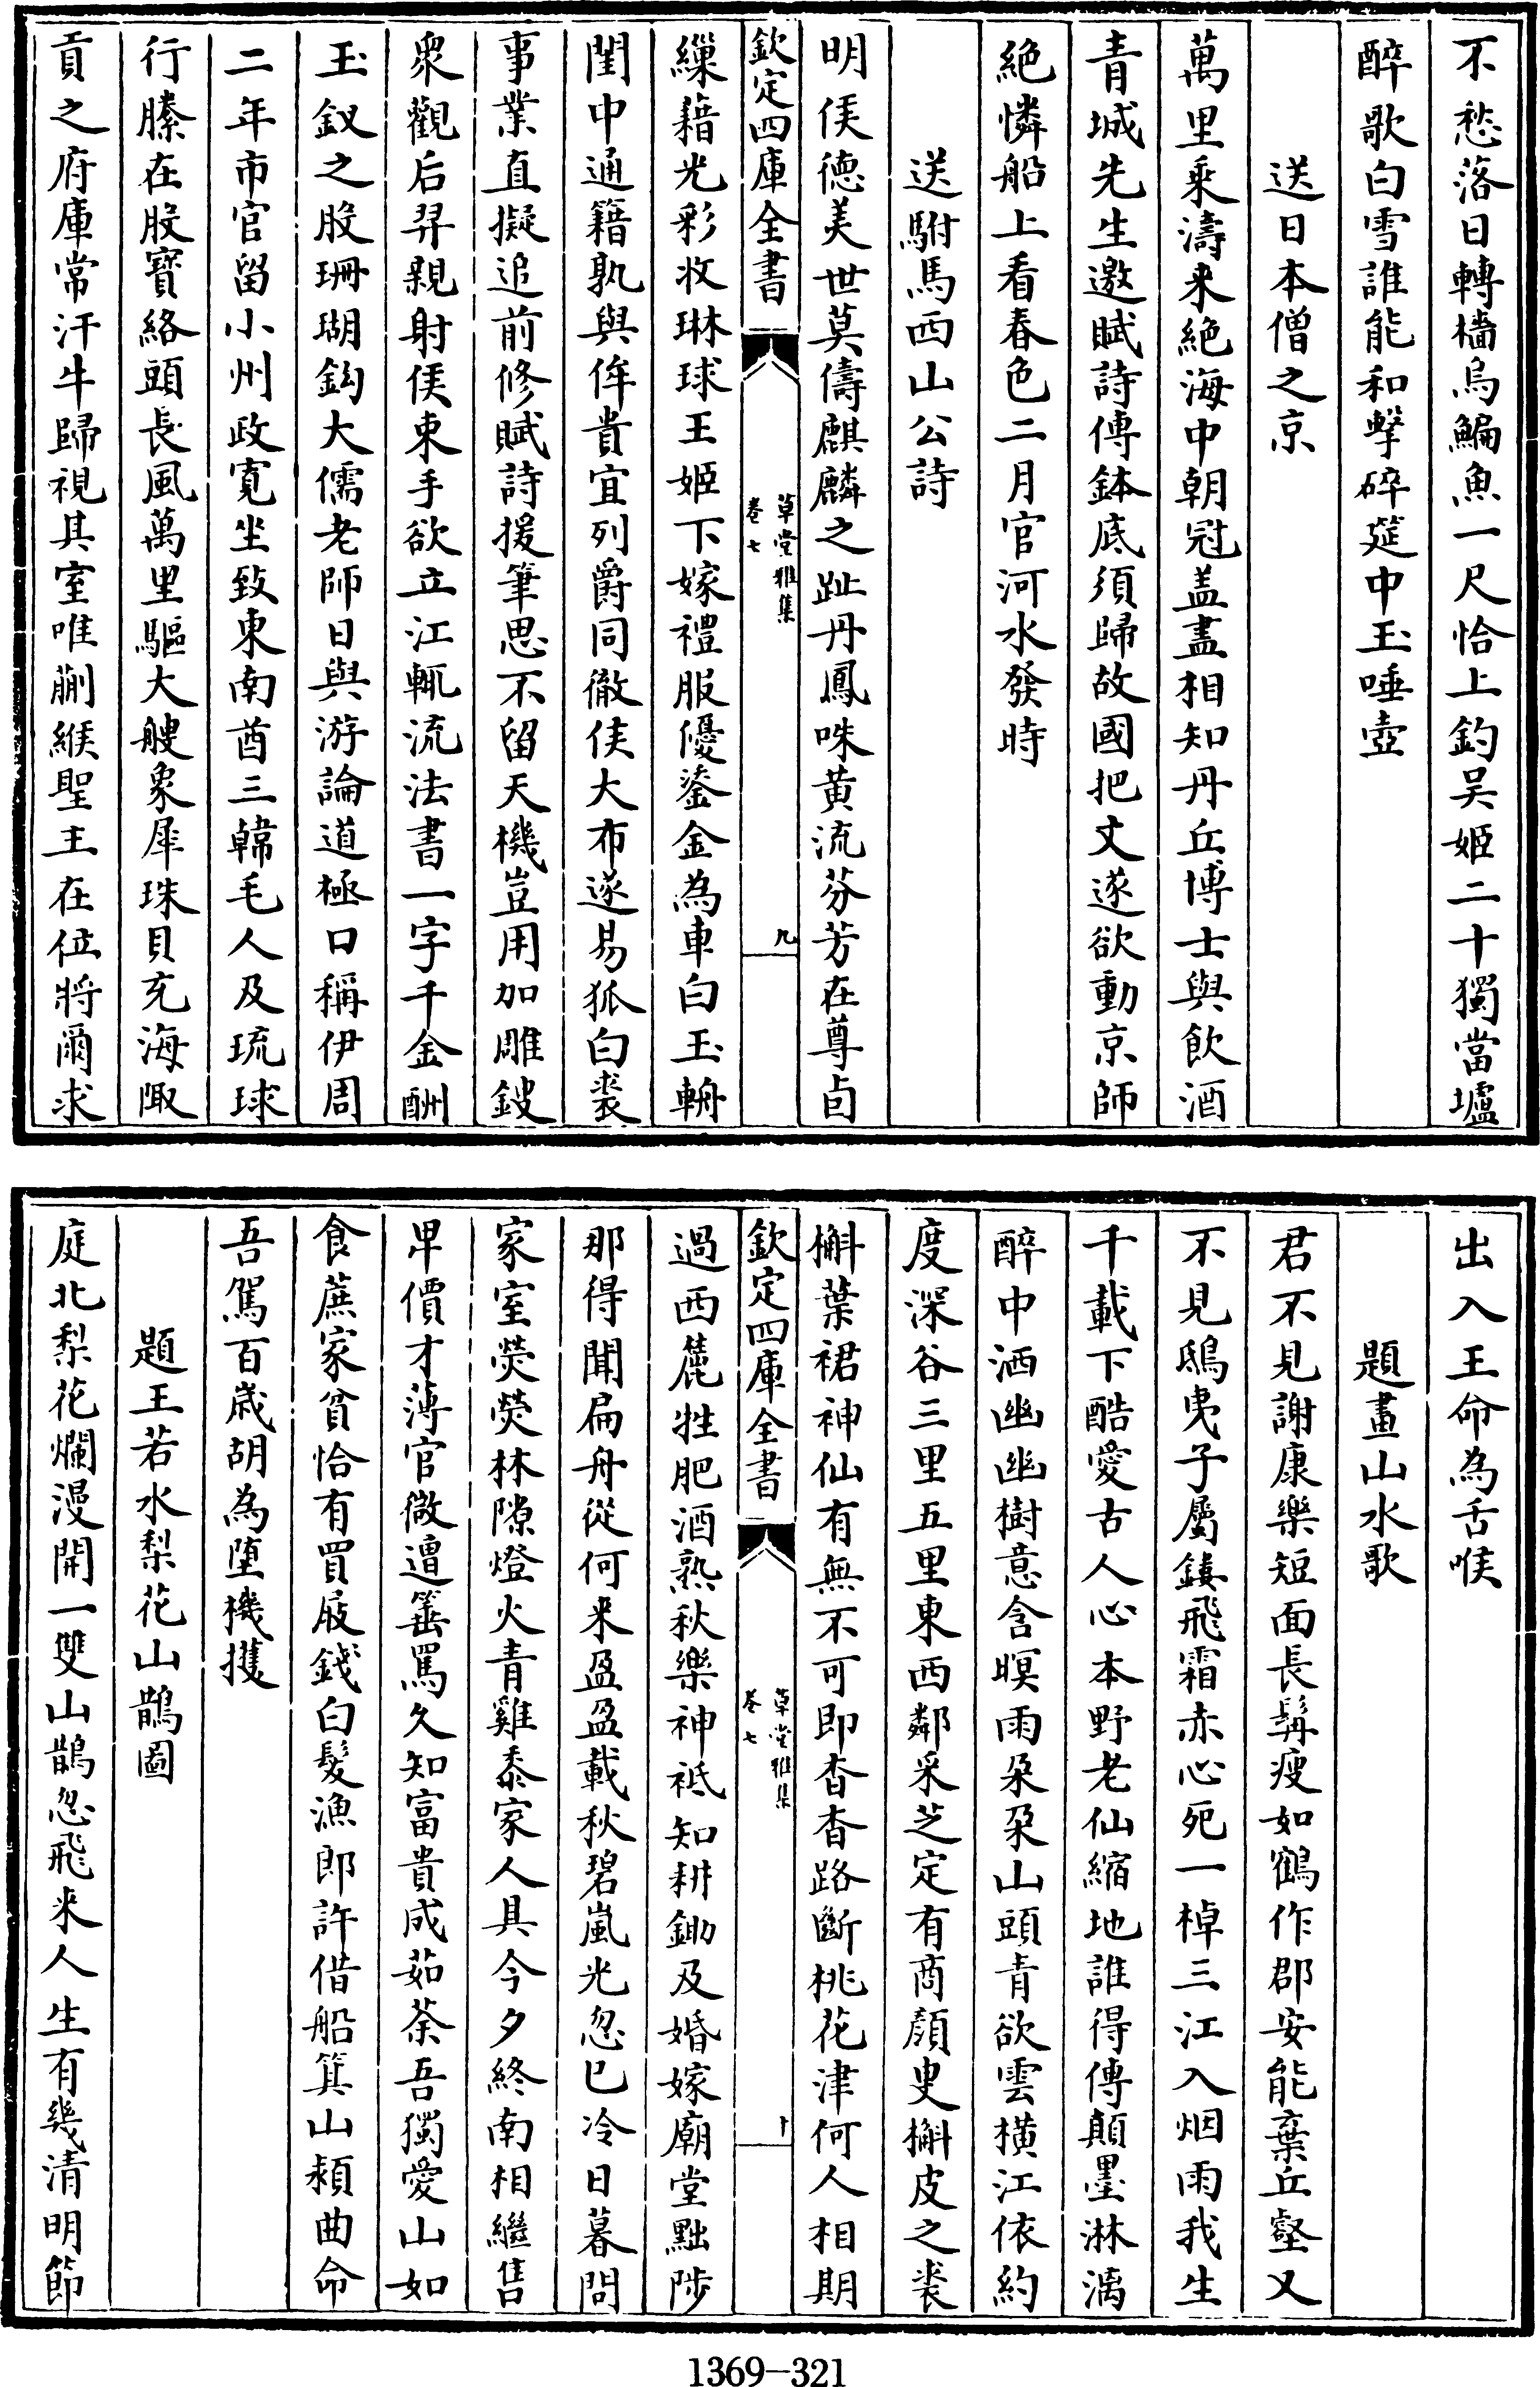 不愁落日轉檣烏鯿魚一尺恰上釣吴姬二十獨當壚
醉歌白雪誰能和擊碎筵中玉唾壺
送日本僧之京
萬里乗濤来絶海中朝冠盖盡相知丹丘博士與飲酒
青城先生邀賦詩傳鉢底須歸故國把文遂欲動京師
絶憐船上看春色二月官河水發時
送駙馬西山公詩
明侯德美世莫儔麒麟之趾丹鳳咮黄流芬芳在尊卣
欽定四庫全書
草堂雅集
卷七
九
繅藉光彩收琳球王姬下嫁禮服優鋈金為車白玉輈
閨中通籍孰與侔貴宜列爵同徹侯大布遂易狐白裘
事業直擬追前修賦詩援筆思不留天機豈用加雕鎪
衆觀后羿親射侯束手欲立江輒流法書一字千金酬
玉釵之股珊瑚鈎大儒老師日與游論道極口稱伊周
二年市官留小州政寛坐致東南酋三韓毛人及琉球
行縢在股寳絡頭長風萬里驅大艘象犀珠貝充海陬
貢之府庫常汗牛歸視其室唯蒯緱聖主在位將爾求
出入王命為舌喉
題畫山水歌
君不見謝康樂短面長髯瘦如鶴作郡安能棄丘壑又
不見鴟夷子屬鏤飛霜赤心死一棹三江入烟雨我生
千載下酷愛古人心本野老仙縮地誰得傳顛墨淋漓
醉中洒幽幽樹意含暝雨朶朶山頭青欲雲横江依約
度深谷三里五里東西鄰采芝定有商顔叟槲皮之裘
槲葉裙神仙有無不可即杳杳路斷桃花津何人相期
欽定四庫全書
草堂雅集
卷七
十
過西麓牲肥酒熟秋樂神祗知耕鋤及婚嫁廟堂黜陟
那得聞扁舟從何来盈盈載秋碧嵐光忽已冷日暮問
家室熒熒林隙燈火青雞黍家人具今夕終南相繼售
卑價才薄官微遭箠罵久知富貴成茹荼吾獨愛山如
食蔗家貧恰有買屐錢白髮漁郎許借船箕山潁曲命
吾駕百歲胡為墮機擭
題王若水梨花山鵲圖
庭北梨花爛漫開一雙山鵲忽飛来人生有幾清明節
1369-321